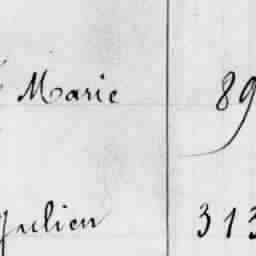 Marie 89
Julien 313